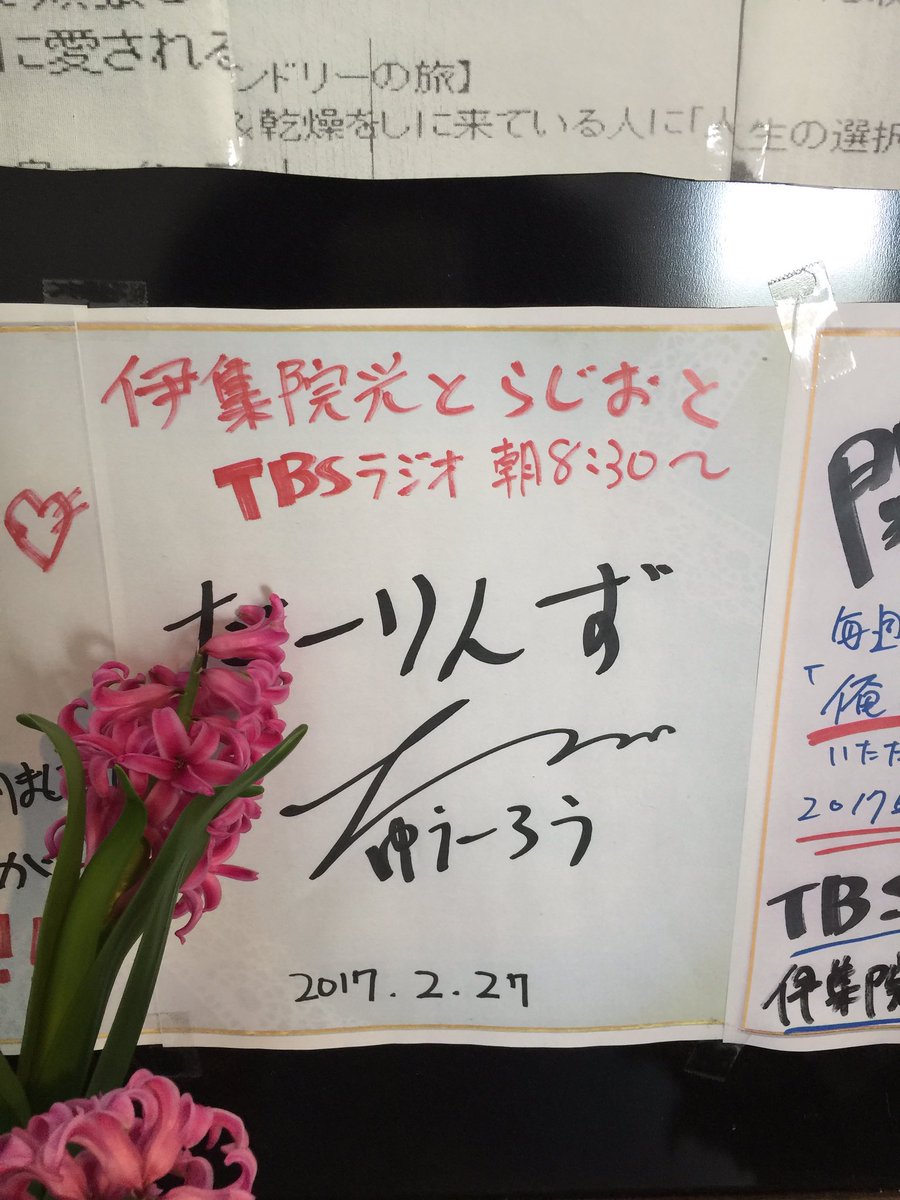 に愛される
ンドリーの旅】
&乾燥をしに来ている人に「人生の選択
伊集院光とらじおと
TBSラジオ 朝8:30〜
だーりんず
ゆうーろう
2017.2.27
りまし
が
!!
毎週
「俺
いただ
2017
TBS
伊集院